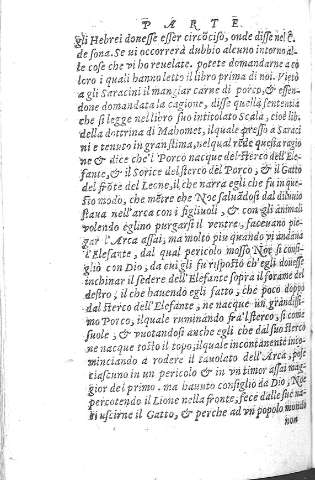 PARTE
gli Hebrei douesse esser circõciso, onde disse nel c.
de sona. Se ui occorrerà dubbio alcuno intorno al-
le cose che vi ho reuelate. potete domandarne a co
loro i quali hanno letto il libro prima di noi. Vietò
a gli Saracini il mangiar carne di porco, & essen-
done domandata la cagione, disse quella sententia
che si legge nel libro suo intitolato Scala, cioè lib.
della dottrina di Mahomet, il quale presso a Saraci
ni e tenuto in granstima, nel qual rẽde questa ragio
ne & dice che'l Porco nacque del sterco dell'Ele-
fante, & il Sorice del sterco del Porco, & il Gatto
del frõte del Leone, il che narra egli che fu in que-
sto modo, che mẽtre che Noe saluãdosi dal diluuio
staua nell'arca con i figliuoli, & con gli animali
volendo eglino purgarsi il ventre, faceuano pie-
gar l'Arca assai, ma molto piu quando vi andaua
l'Elefante, dal qual pericolo mosso Noe si consi-
gliò con Dio, da cui gli fu risposto ch'egli douesse
inchinar il sedere dell'Elefante sopra il forame del
destro, il che hauendo egli fatto, che poco doppò
dal sterco dell'Elefante, ne nacque un grandissi-
mo Porco, il quale ruminando fra'l sterco, si come
suole, & vuotandosi anche egli che dal suo sterco
ne nacque tosto il topo, il quale incontanente inco-
minciando a rodere il tauolato dell'Arca, pose
ciascuno in un pericolo & in vn timor assai mag-
gior del primo. ma hauuto consiglio da Dio, Noe
percotendo il Lione nella fronte, fece dalle sue na-
ri uscirne il Gatto, & perche ad vn popolo mondo
non